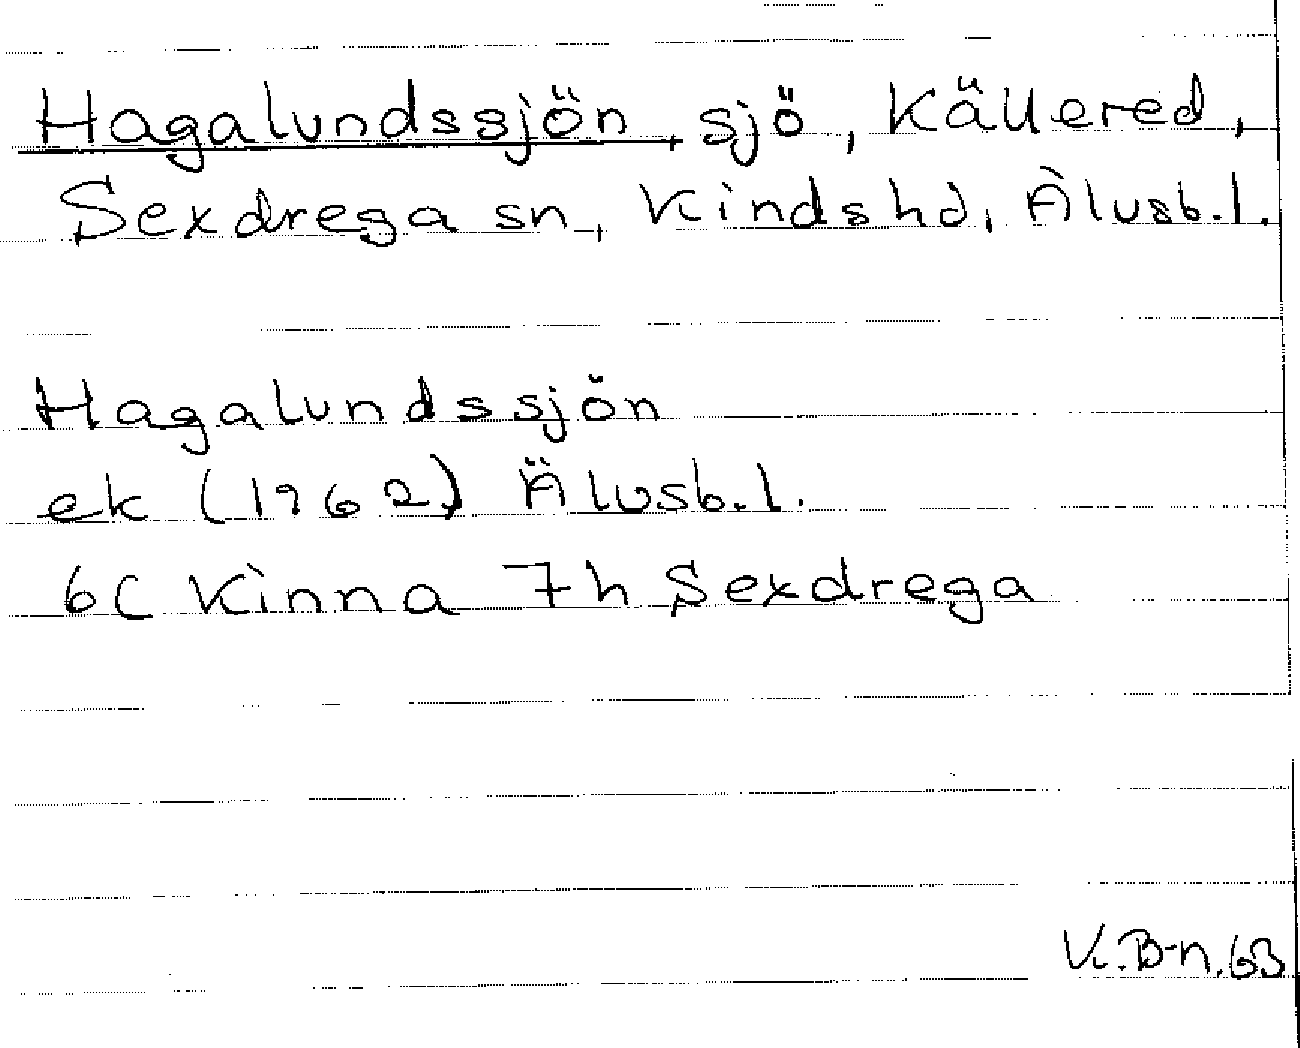 Hagalundssjön, sjö, Källered,
Sexdrega sn, Kinds hd, Älvsb.l.
Hagalundssjön
ek (1962) Älvsb.l.
6C Kinna 7h Sexdrega
K.B-n.63